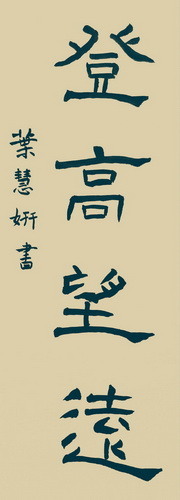 登高望遠
葉慧妍書